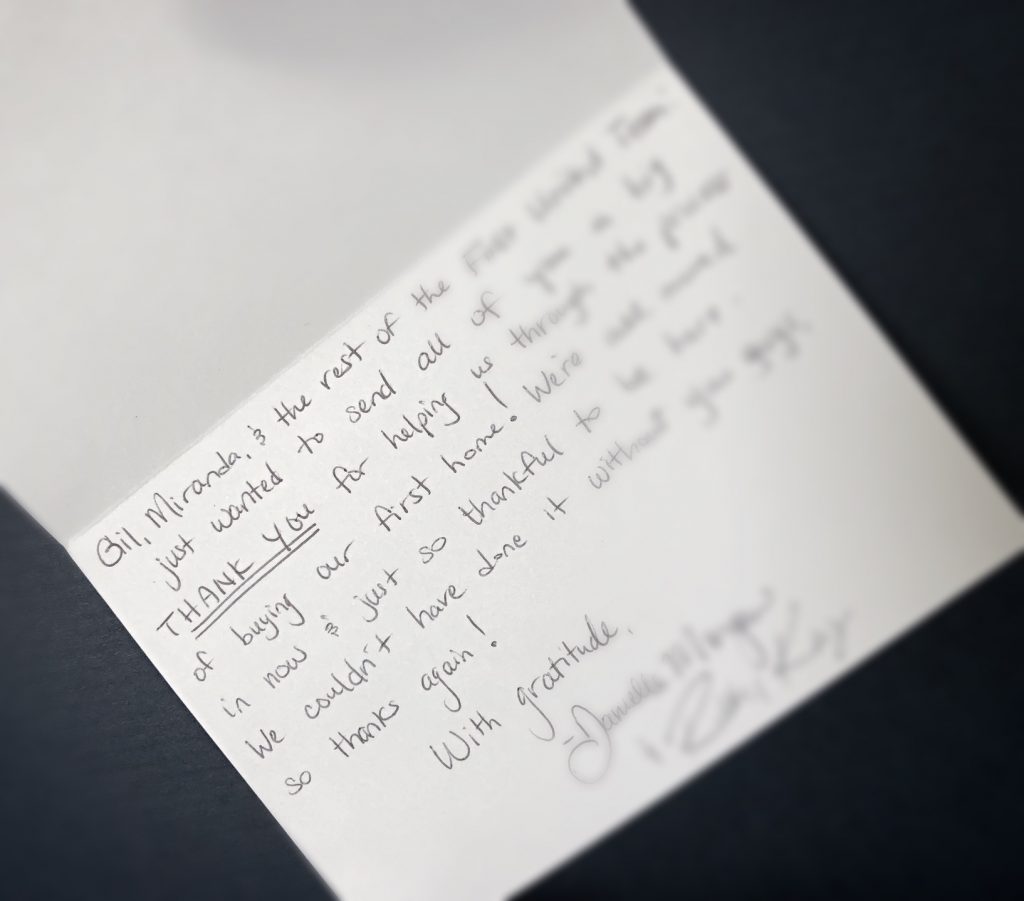 Gil, Miranda, & the rest of the First United Team
just wanted to send all of you a big
THANK YOU for helping us through the process
of buying our first home! We're all moved
in now & just so thankful to be here.
We couldn't have done it without you guys,
so thanks again!
With gratitude,
-Danielle